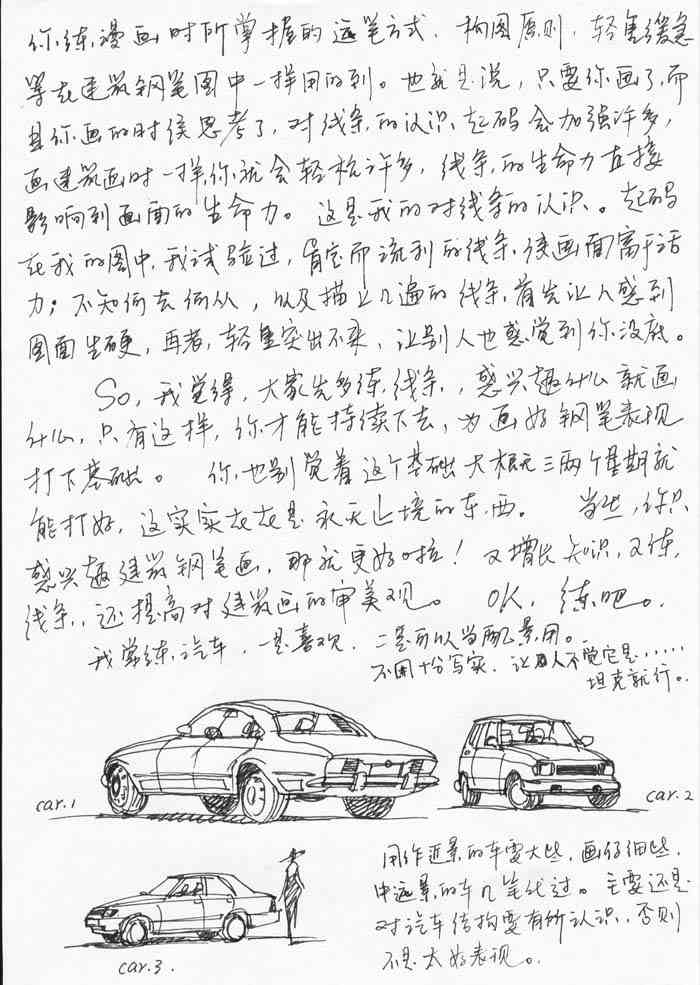 你练漫画时所掌握的运笔方式、构图原则，轻重缓急
等在建筑钢笔图中一样用的到。也就是说，只要你画了，而
且你画的时候思考了，对线条的认识、起码会加强许多，
画建筑画时一样，你就会轻松许多，线条的生命力直接
影响到画面的生命力。这是我的对线条的认识。起码
在我的图中，我试验过，肯定而流利的线条使画面富于活
力；不知何去何从，以及描上几遍的线条，首先让人感到
图面生硬，再者，轻重突出不来，让别人也感觉到你没底。
So，我觉得，大家先多练线条，感兴趣什么就画
什么，只有这样，你才能持续下去，为画好钢笔表现
打下基础。 你也别觉着这个基础大概三两个星期就
能打好，这实实在在是永无止境的东西。 当然，你只
感兴趣建筑钢笔画，那就更好啦！又增长知识，又练
线条，还提高对建筑画的审美观。 OK，练吧。
我常练汽车，一是喜欢，二是可以当配景用。
不用十分写实，让人不觉它是……
坦克就行。
car.1
car.2
用作近景的车要大些，画仔细些，
中远景的车几笔代过。主要还是
对汽车结构要有所认识，否则
不是太好表现。
car.3.